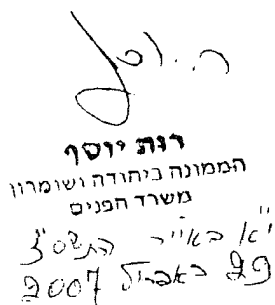 רות יוסף
הממונה ביהודה ושומרון
משרד הפנים
י"א באייר התשס"ז
29 באפריל 2007